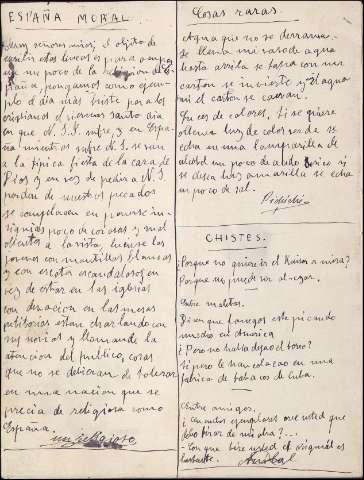 ESPAÑA MORAL.
Muy señores mios; el objeto de
escribir estas lineas es para ocupar
me un poco de la religion de Es
paña pongamos como ejem
plo el dia mas triste para los
cristianos el viernes santo dia
en que N. S. sufre, y en Espa
ña mientras sufre N. S. se van
a la tipica fiesta de la cara de
Dios y en vez de pedir a N. S.
perdon de nuestros pecados
se complacen en ponerse in-
signias poco decorosas y mal
a la vista, lucense las
jovenes con mantillas blancas
y con escotes escandalosos en
vez de estar en las iglesias
con devocion en las mesas
petitorias estan charlando con
sus novios y llamando la
atencion del publico, cosas
que no se debieran de tolerar
en una nacion que se
precia de religiosa como
España.
un religioso
Cosas raras.
Agua que no se derrama.-
Se llena un vaso de agua
hasta arriba se tapa con un
carton se invierte y ni el agua
ni el carton se caeran.
Luces de colores. Si se quiere
obtener luz de color verde se
echa en una lamparilla de
alcohol un poco de acido borico si
se desea luz amarilla se echa
un poco de sal.
CHISTES.
¿Porque no quiere ir el Kaiser a misa?
Porque no puede ver al-zar.
Entre maletas.
Dicen que Longos este picando
mucho en America
¿Pero no habia dejado el toreo?
Si pero le han colocao en una
fabrica de tabacos de Cuba.
Entre amigos.
¿Cuantos ejemplares cree usted que
debo tirar de mi obra?...
-Con que tire usted el original es
bastante.